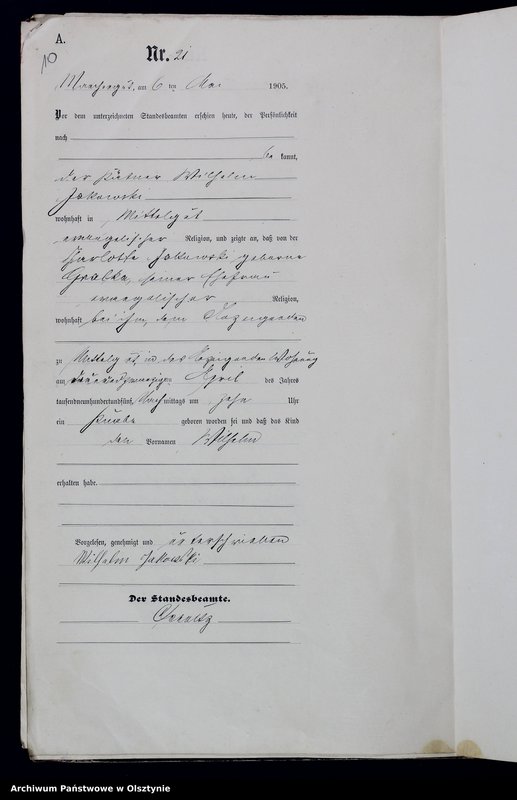 A.
10
Nr. 21
am 6 ten Mai 1905.
Vor dem unterzeichneten Standesbeamten erschien heute, der Persönlichkeit
nach
be kannt,
der Wilhelm
Jakowski
wohnhaft in Mittelgut
evangelischer Religion, und zeigte an, daß von der
Jakowski geborene
Grabka, seiner Ehefrau
evangelischer Religion,
wohnhaft bei ihm, dem
zu Mittelgut, in des Wohnung
am April des Jahres
tausendneunhundertundfünf, Nachmittags um zehn Uhr
ein Knabe geboren worden sei und daß das Kind
den Vornamen Wilhelm
erhalten habe.
Vorgelesen, genehmigt und unterschrieben
Wilhelm Jakowski
Der Standesbeamte.
Archiwum Państwowe w Olsztynie